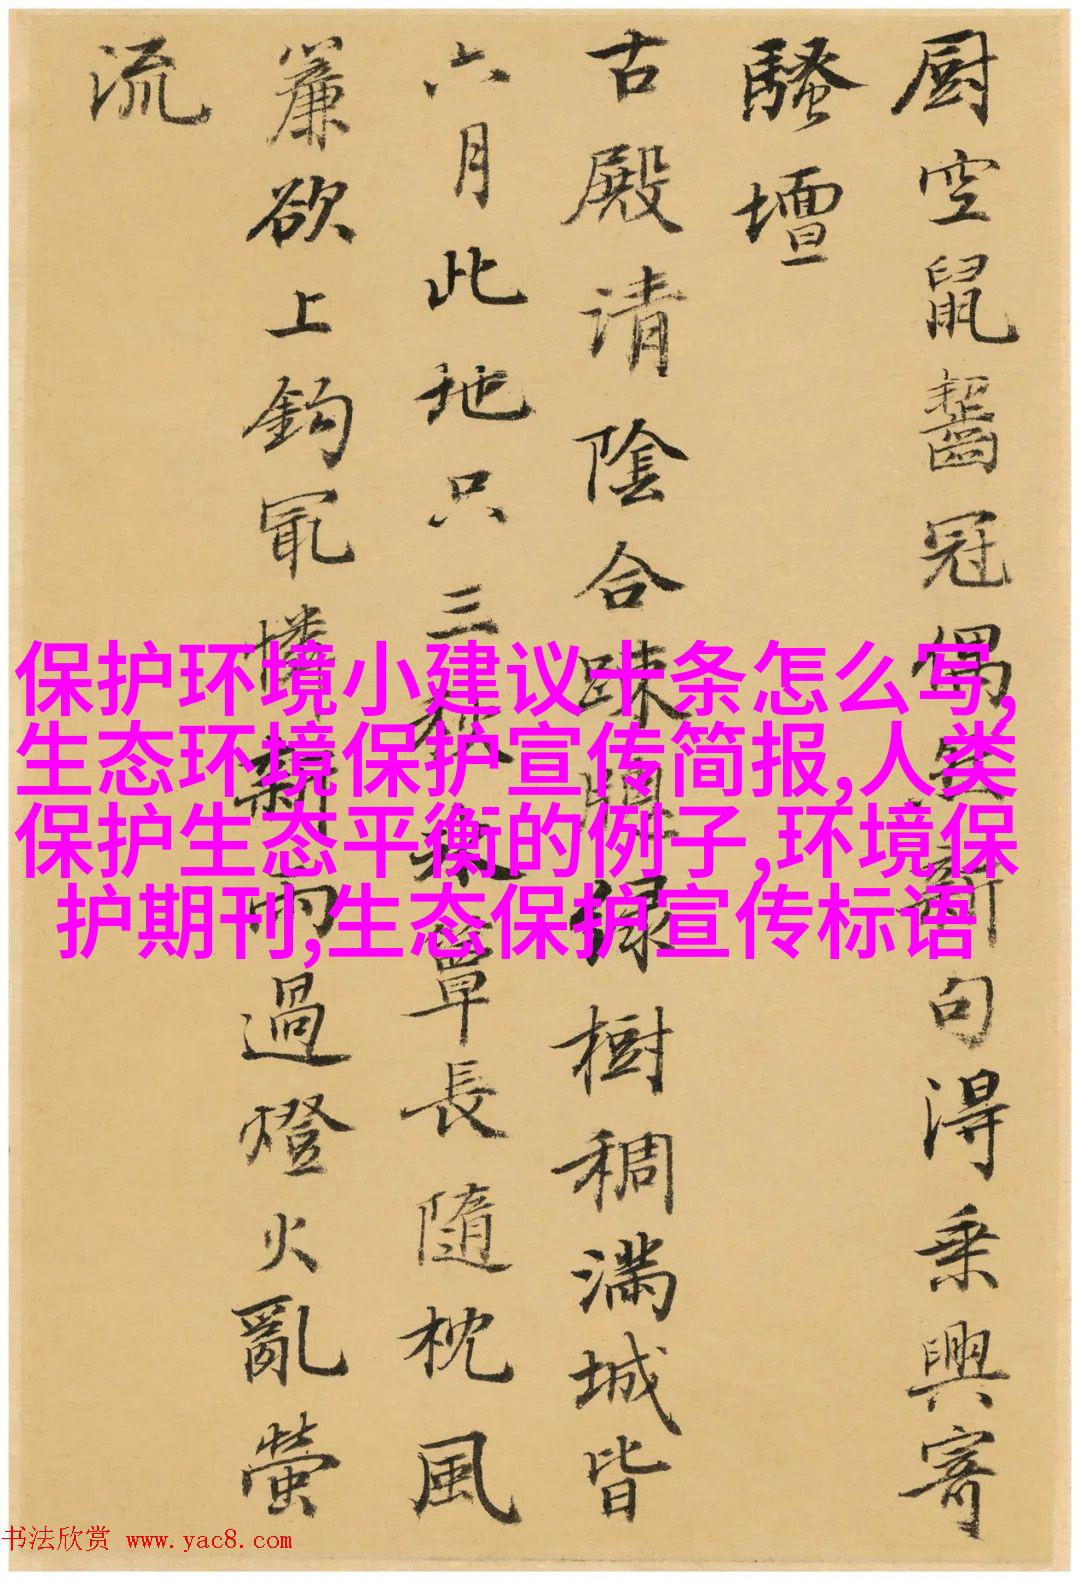 厨空鼠齧冠偶無新句得乗興寄
騷壇
古殿请陰合踈開绿樹稠滿城皆
六月此地只三秋葉單長隨枕風
簾欲上鈎冣憐新雨過燈火亂螢
流
保护环境小建议十条怎么写,
生态环境保护宣传简报,人类
保护生态平衡的例子,环境保
护期刊,生态保护宣传标语
书法欣赏 www.yac8.com